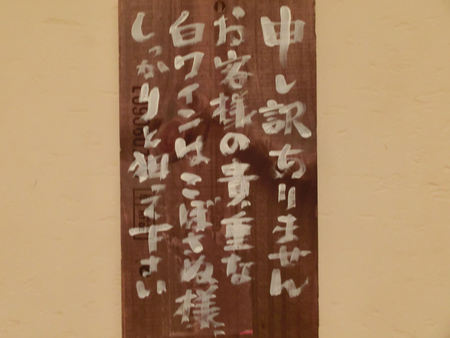 申し訳ありません
お客様の貴重な
白ワインはこぼさぬ様、
しっかりと狙って下さい